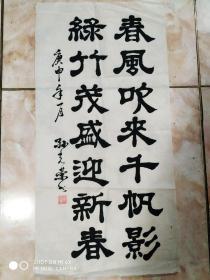 春風吹来千帆影
綠竹茂盛迎新春
庚申年一月